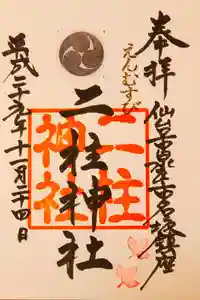 奉拝 仙臺泉市名坂鎮座
えんむすび
二柱神社
二柱
神社
平成二十五年十一月二十四日